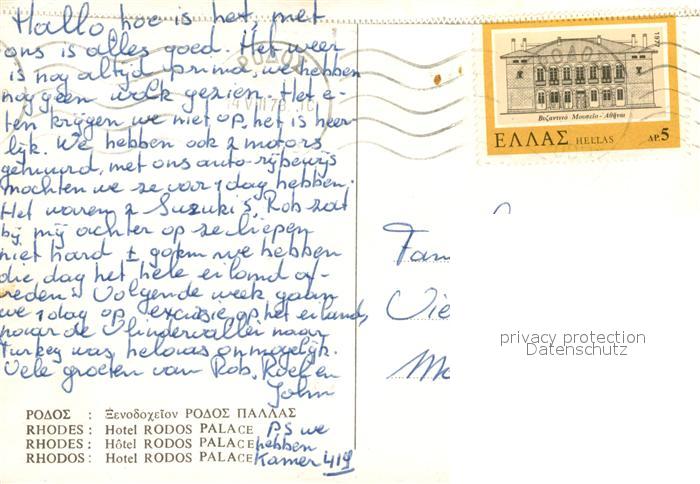 Hallo, hoe is het, met
ons is alles goed. Het weer
is nog altijd prima, we hebben
nog geen wolk gezien. Het e-
ten krijgen we niet op, het is heer-
lijk. We hebben ook 2 motors
gehuurd, met ons auto-rijbewijs
mochten we ze voor 1 dag hebben.
Het waren 2 Suzuki's, Rob zat
bij mij achter op ze liepen
niet hard ± 90km we hebben
die dag het hele eiland ge-
reden. Volgende week gaan
we 1 dag op excursie op het eiland,
naar de Vlindervallei naar
Turkey was helaas onmogelijk.
Vele groeten van Rob, Roel en
John
PS we
hebben
Kamer 419
ΡΟΔΟΣ : Ξενοδοχεῖον ΡΟΔΟΣ ΠΑΛΛΑΣ
RHODES : Hotel RODOS PALACE
RHODES : Hôtel RODOS PALACE
RHODOS : Hotel RODOS PALACE
ΡΟΔΟΣ
1977
Βυζαντινό Μουσεῖο - Ἀθῆναι
ΕΛΛΑΣ HELLAS ΔΡ. 5
Fam
Vie
privacy protection
Datenschutz